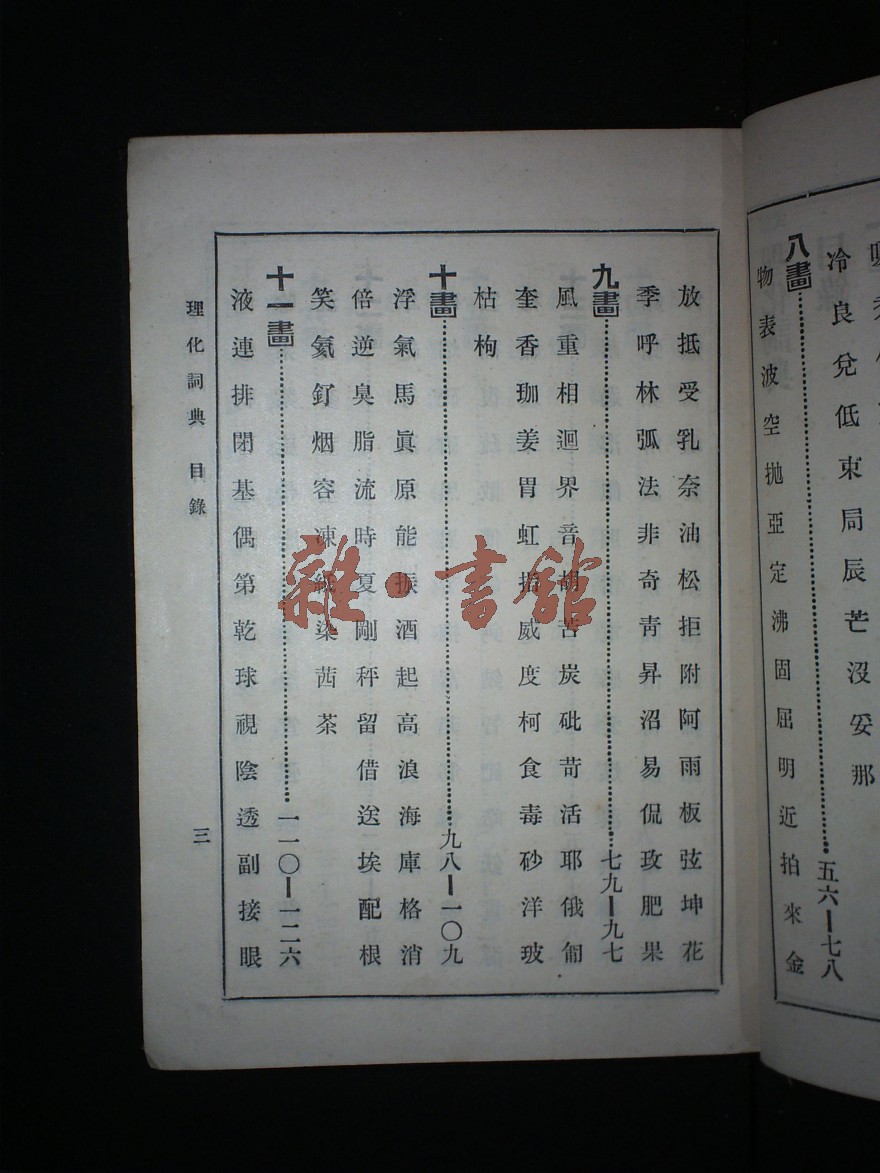 冷良兌低束局辰芒沒妥那
八畫 五六—七八
物表波空拋亞定沸固屈明近拍來金
放抵受乳奈油松拒附阿雨板弦坤花
季呼林弧法非奇靑昇沼易侃玫肥果
九畫 七九—九七
風重相迴界音胡苦炭砒苛活耶俄匍
奎香珈姜胃虹指威度柯食毒砂洋玻
枯枸
十畫 九八—一〇九
浮氣馬眞原能振酒起高浪海庫格消
倍逆臭脂流時夏剛秤留借送埃配根
笑氦釘烟容凍紙染茜茶
十一畫 一一〇—一二六
液連排閉基偶第乾球視陰透副接眼
理化詞典 目錄 三
雜·書館